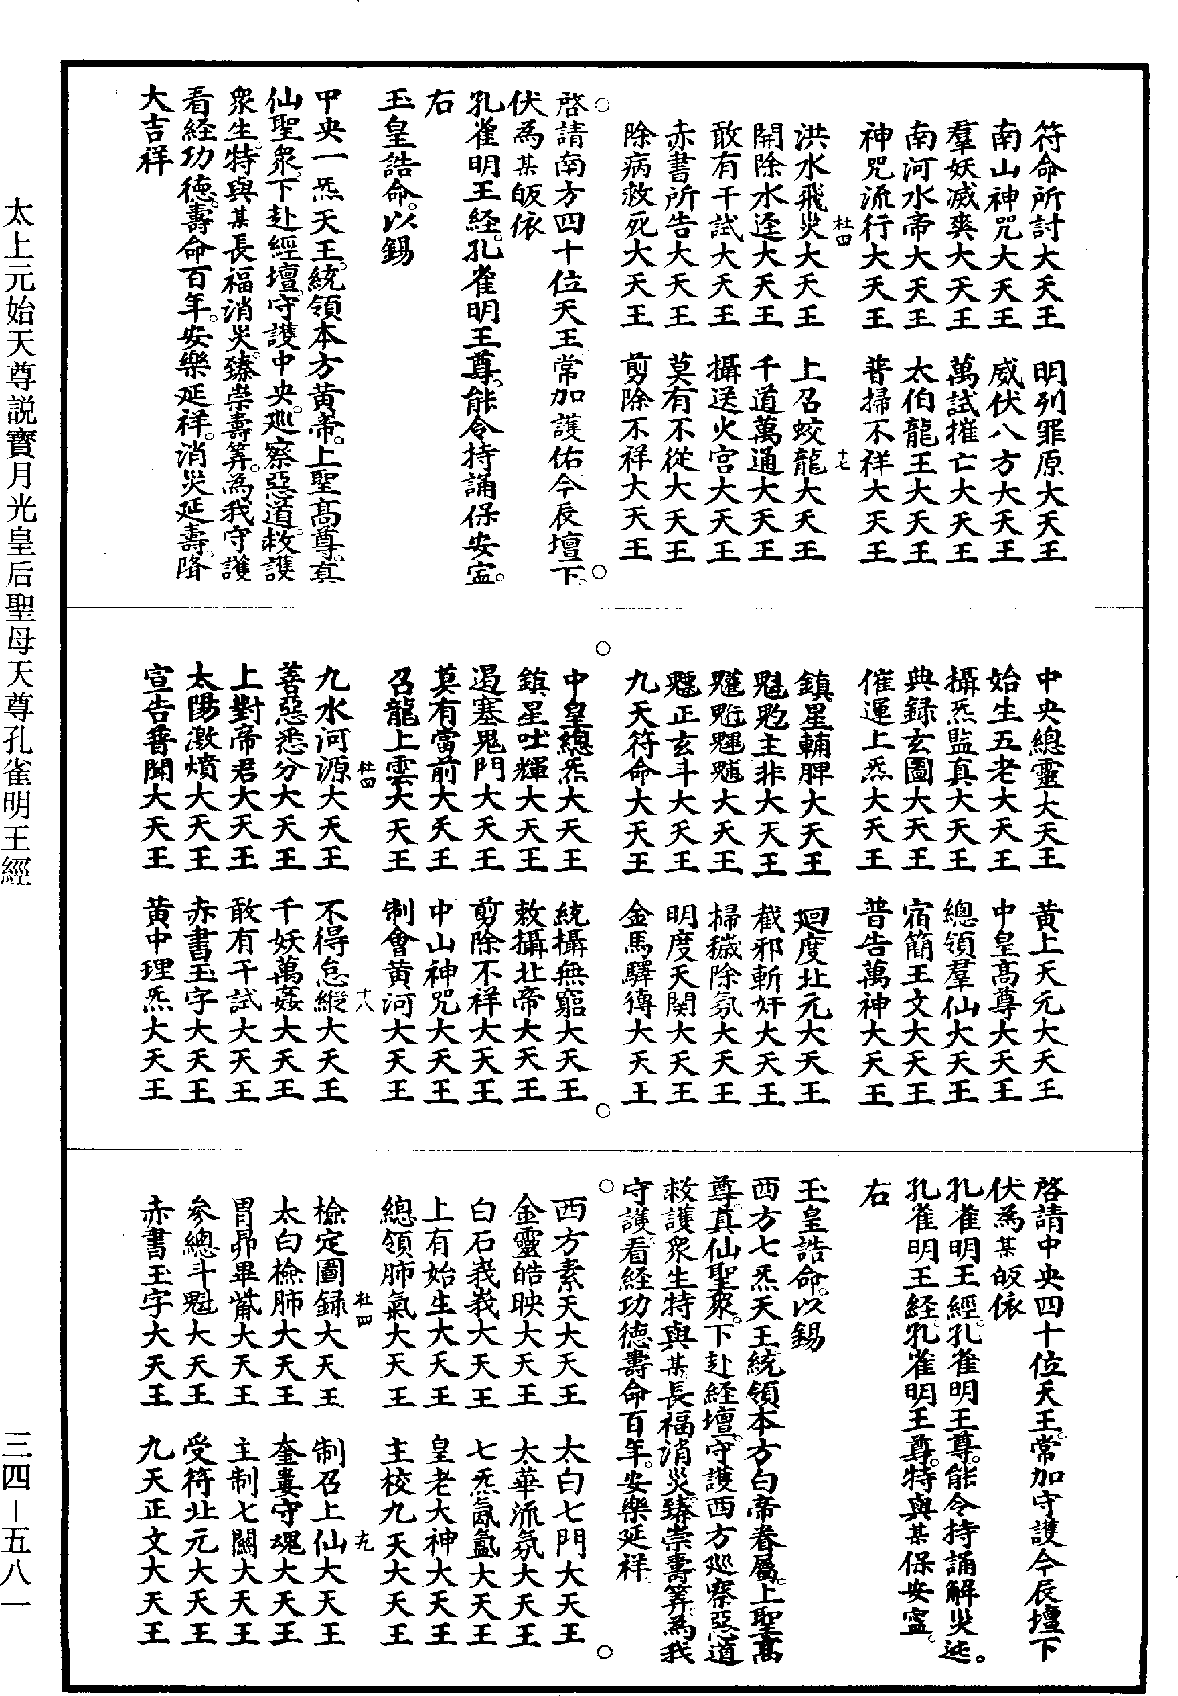 符命所討大天王　明列罪原大天王
南山神咒大天王　威伏八方大天王
羣妖滅爽大天王　萬試摧亡大天王
南河水帝大天王　太伯龍王大天王
神咒流行大天王　普掃不祥大天王
杜四　十七
洪水飛災大天王　上召蛟龍大天王
開除水逕大天王　千道萬通大天王
敢有干試大天王　攝送火宮大天王
赤書所告大天王　莫有不從大天王
除病救死大天王　剪除不祥大天王
○　○
啓請南方四十位天王常加護佑今辰壇下
伏為某皈依
孔雀明王經孔雀明王尊能令持誦保安寍
右
玉皇誥命以錫
中央一炁天王統領本方黃帝上聖高尊真
仙聖衆下赴經壇守護中央巡察惡道救護
衆生特與某長福消災臻崇壽筭為我守護
看經功德壽命百年安樂延祥消災延壽降
大吉祥
中央總靈大天王　黃上天元大天王
始生五老大天王　中皇高尊大天王
攝炁監真大天王　總領羣仙大天王
典録玄圖大天王　宿簡玉文大天王
催運上炁大天王　普告萬神大天王
鎮星輔脾大天王　廻度北元大天王
魁魀主非大天王　截邪斬奸大天王
大天王　掃穢除氛大天王
魓正玄斗大天王　明度天関大天王
九天符命大天王　金馬驛傳大天王
○　○
中皇總炁大天王　統攝無窮大天王
鎮星吐輝大天王　敕攝北帝大天王
遏塞鬼門大天王　剪除不祥大天王
莫有當前大天王　中山神咒大天王
召龍上雲大天王　制會黃河大天王
杜四　十八
九水河源大天王　不得怠縱大天王
善惡悉分大天王　千妖萬姦大天王
上對帝君大天王　敢有干試大天王
太陽激憤大天王　赤書玉字大天王
宣告普聞大天王　黃中理炁大天王
啓請中央四十位天王常加守護今辰壇下
伏為某皈依
孔雀明王經孔雀明王尊能令持誦解災迍。
孔雀明王經孔雀明王尊特與某保安寍。
右
玉皇誥命以錫
西方七炁天王統領本方白帝眷屬上聖高
尊真仙聖衆下赴經壇守護西方巡察惡道
救護衆生特與某長福消災臻崇壽筭為我
守護看經功德壽命百年安樂延祥
○　○
西方素天大天王　太白七門大天王
金靈皓映大天王　太華流氛大天王
白石峩峩大天王　七炁氤氳大天王
上有始生大天王　皇老大神大天王
總領肺氣大天王　主校九天大天王
杜四　十九
檢定圖録大天王　制召上仙大天王
太白檢肺大天王　奎婁守魂大天王
胃昴畢觜大天王　主制七關大天王
參總斗魁大天王　受符北元大天王
赤書玉字大天王　九天正文大天王
太上元始天尊説寶月光皇后聖母天尊孔雀明王經
三四－五八一